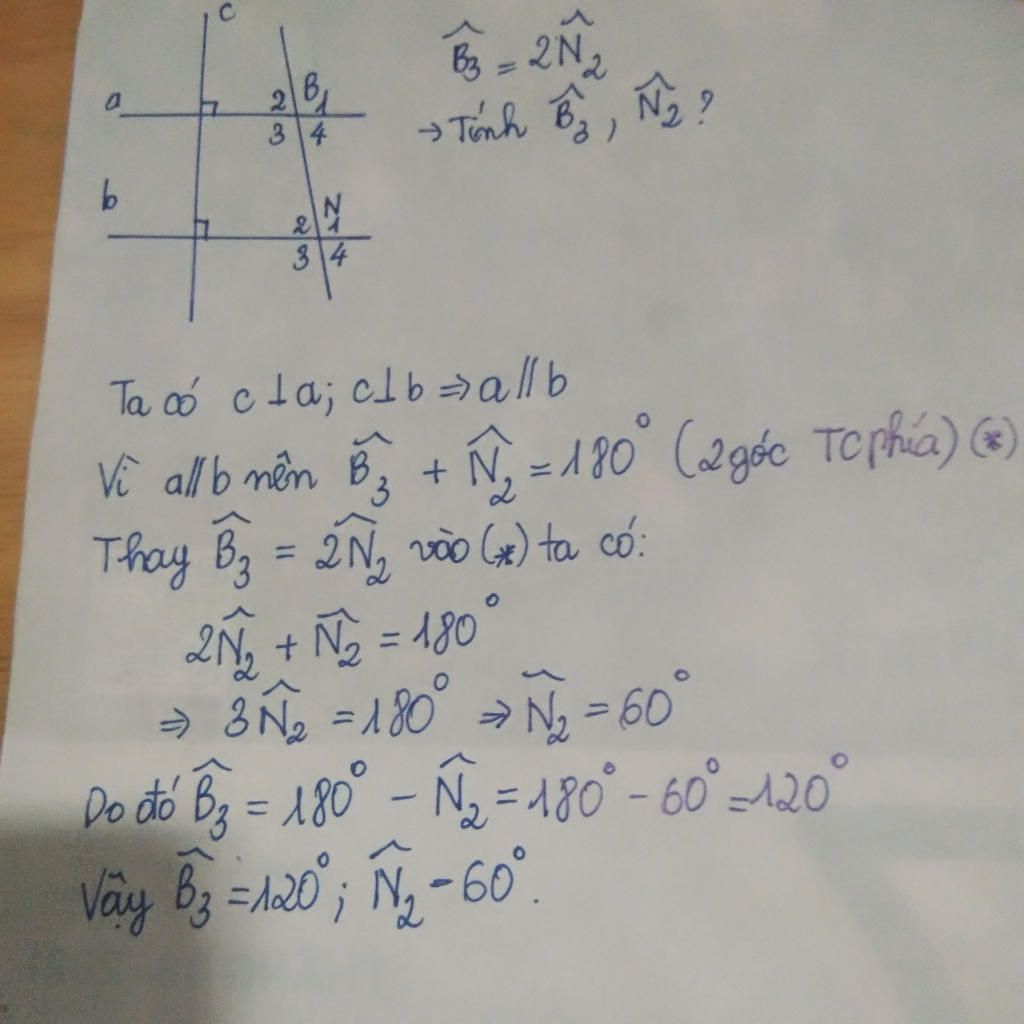 c
a
2 B 1
3 4
b
2 N 1
3 4
B̂₃ = 2N̂₂
→ Tính B̂₃, N̂₂?
Ta có c⊥a; c⊥b ⇒ a//b
Vì a//b nên B̂₃ + N̂₂ = 180° (2góc TCphía) (*)
Thay B̂₃ = 2N̂₂ vào (*) ta có:
2N̂₂ + N̂₂ = 180°
⇒ 3N̂₂ = 180° ⇒ N̂₂ = 60°
Do đó B̂₃ = 180° - N̂₂ = 180° - 60° = 120°
Vậy B̂₃ = 120°; N̂₂ - 60°.